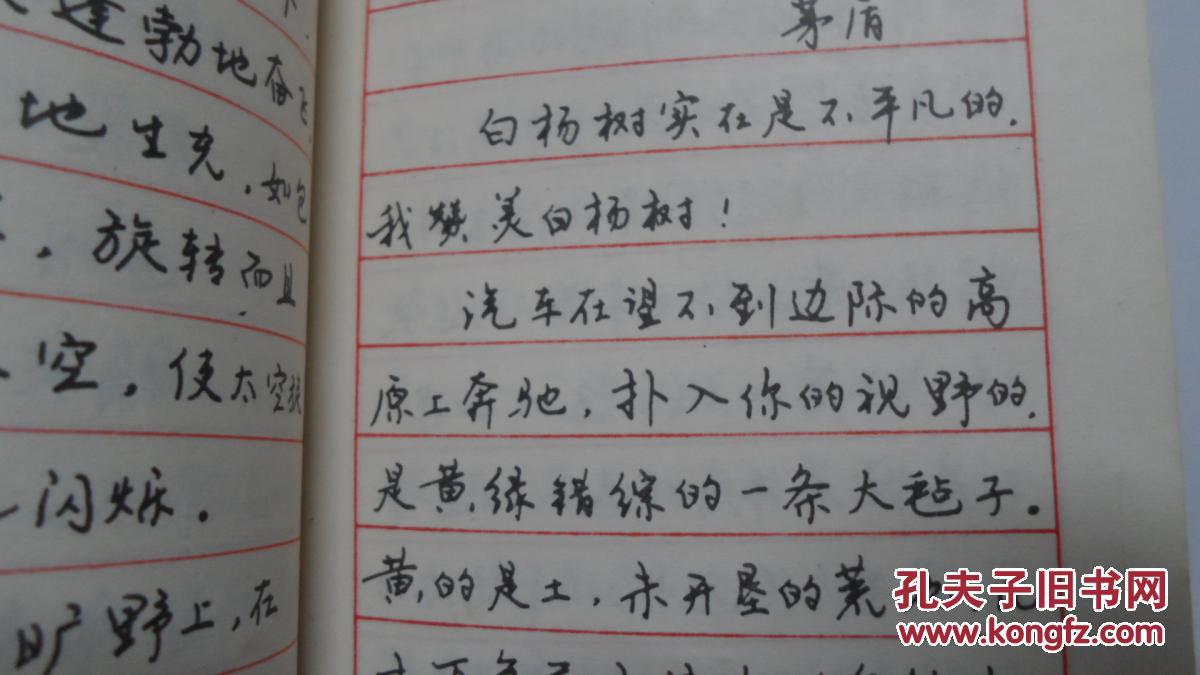 蓬勃地奋飞
地生克，如包
，旋转而且
空，使太空旋
闪烁。
旷野上，在
茅盾
白杨树实在是不平凡的，
我赞美白杨树！
汽车在望不到边际的高
原上奔驰，扑入你的视野的，
是黄绿错综的一条大毡子。
黄的是土，未开垦的荒
孔夫子旧书网
www.kongfz.com